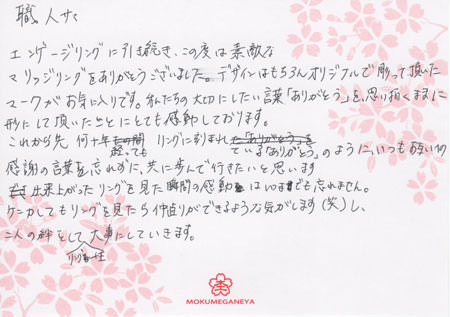 職人サマ
エンゲージリングに引き続き、この度は素敵な
マリッジリングをありがとうございました。デザインはもちろんオリジナルで彫って頂いた
マークがお気に入りです。私たちの大切にしたい言葉「ありがとう」を、思い描くままに
形にして頂いたことにとても感動しております。
これから先 何十年経っても リングに刻まれている「ありがとう」のように、いつもお互いの
感謝の言葉を忘れずに、共に歩んで行きたいと思います
出来上がったリングを見た瞬間の感動はいまでも忘れません。
ケンカしてもリングを見たら仲直りができるような気がします(笑)し、
二人の絆をして大事にしていきます。
MOKUMEGANEYA